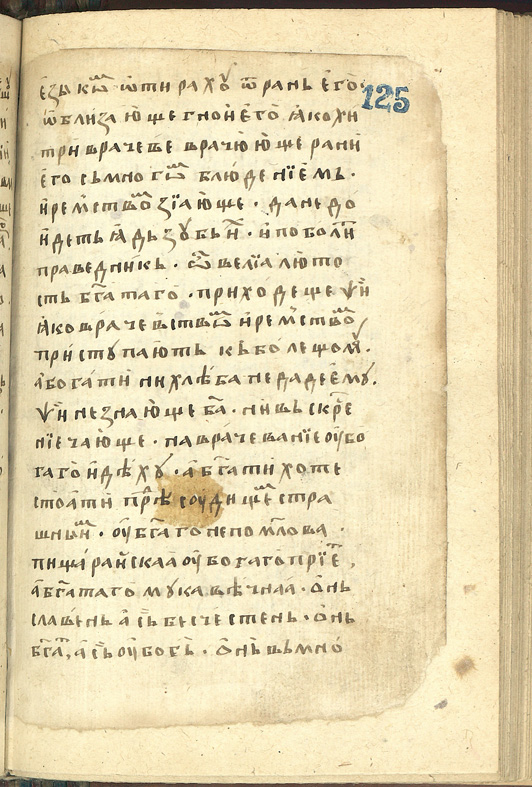 езы кѡⷨ ѡтира хꙋ ѿ рань его
125
ѿблиза юще гной его ꙗкожи
три врачеве врачю юще рани
его сьмно гѡⷨ блюденїемь ·
и ремⷭтвоⷨ зїающе · да недо
идеть ꙗдь зꙋбьнⷩ · и поболи
праведникь · ѿ велїа люто
сть бг҃атаго · приходеще ѱⷭи
ꙗко врачевⷭтвѡⷨ и ремⷭтвоⷨ
пристꙋпають кь болещомꙋ ·
а богати ни хлѣба не даде емꙋ ·
ѱⷭи незнающе ба҃ · ни вьскрⷭе
нїе чающе · на врачеванїе ѹбо
гаго идѣхꙋ · а бг҃ати хоте
стоати прⷣѣ сѹдищеⷨ стра
шныⷨ · ѹбг҃аго непомлⷭова ·
пища райскаа ѹбогаго прїеⷨ ,
а бг҃атаго мꙋка вѣчнаа · онь
славень а сь бесчестень · онь
бг҃аⷮ, а сь ѹбогь · онь вьмно